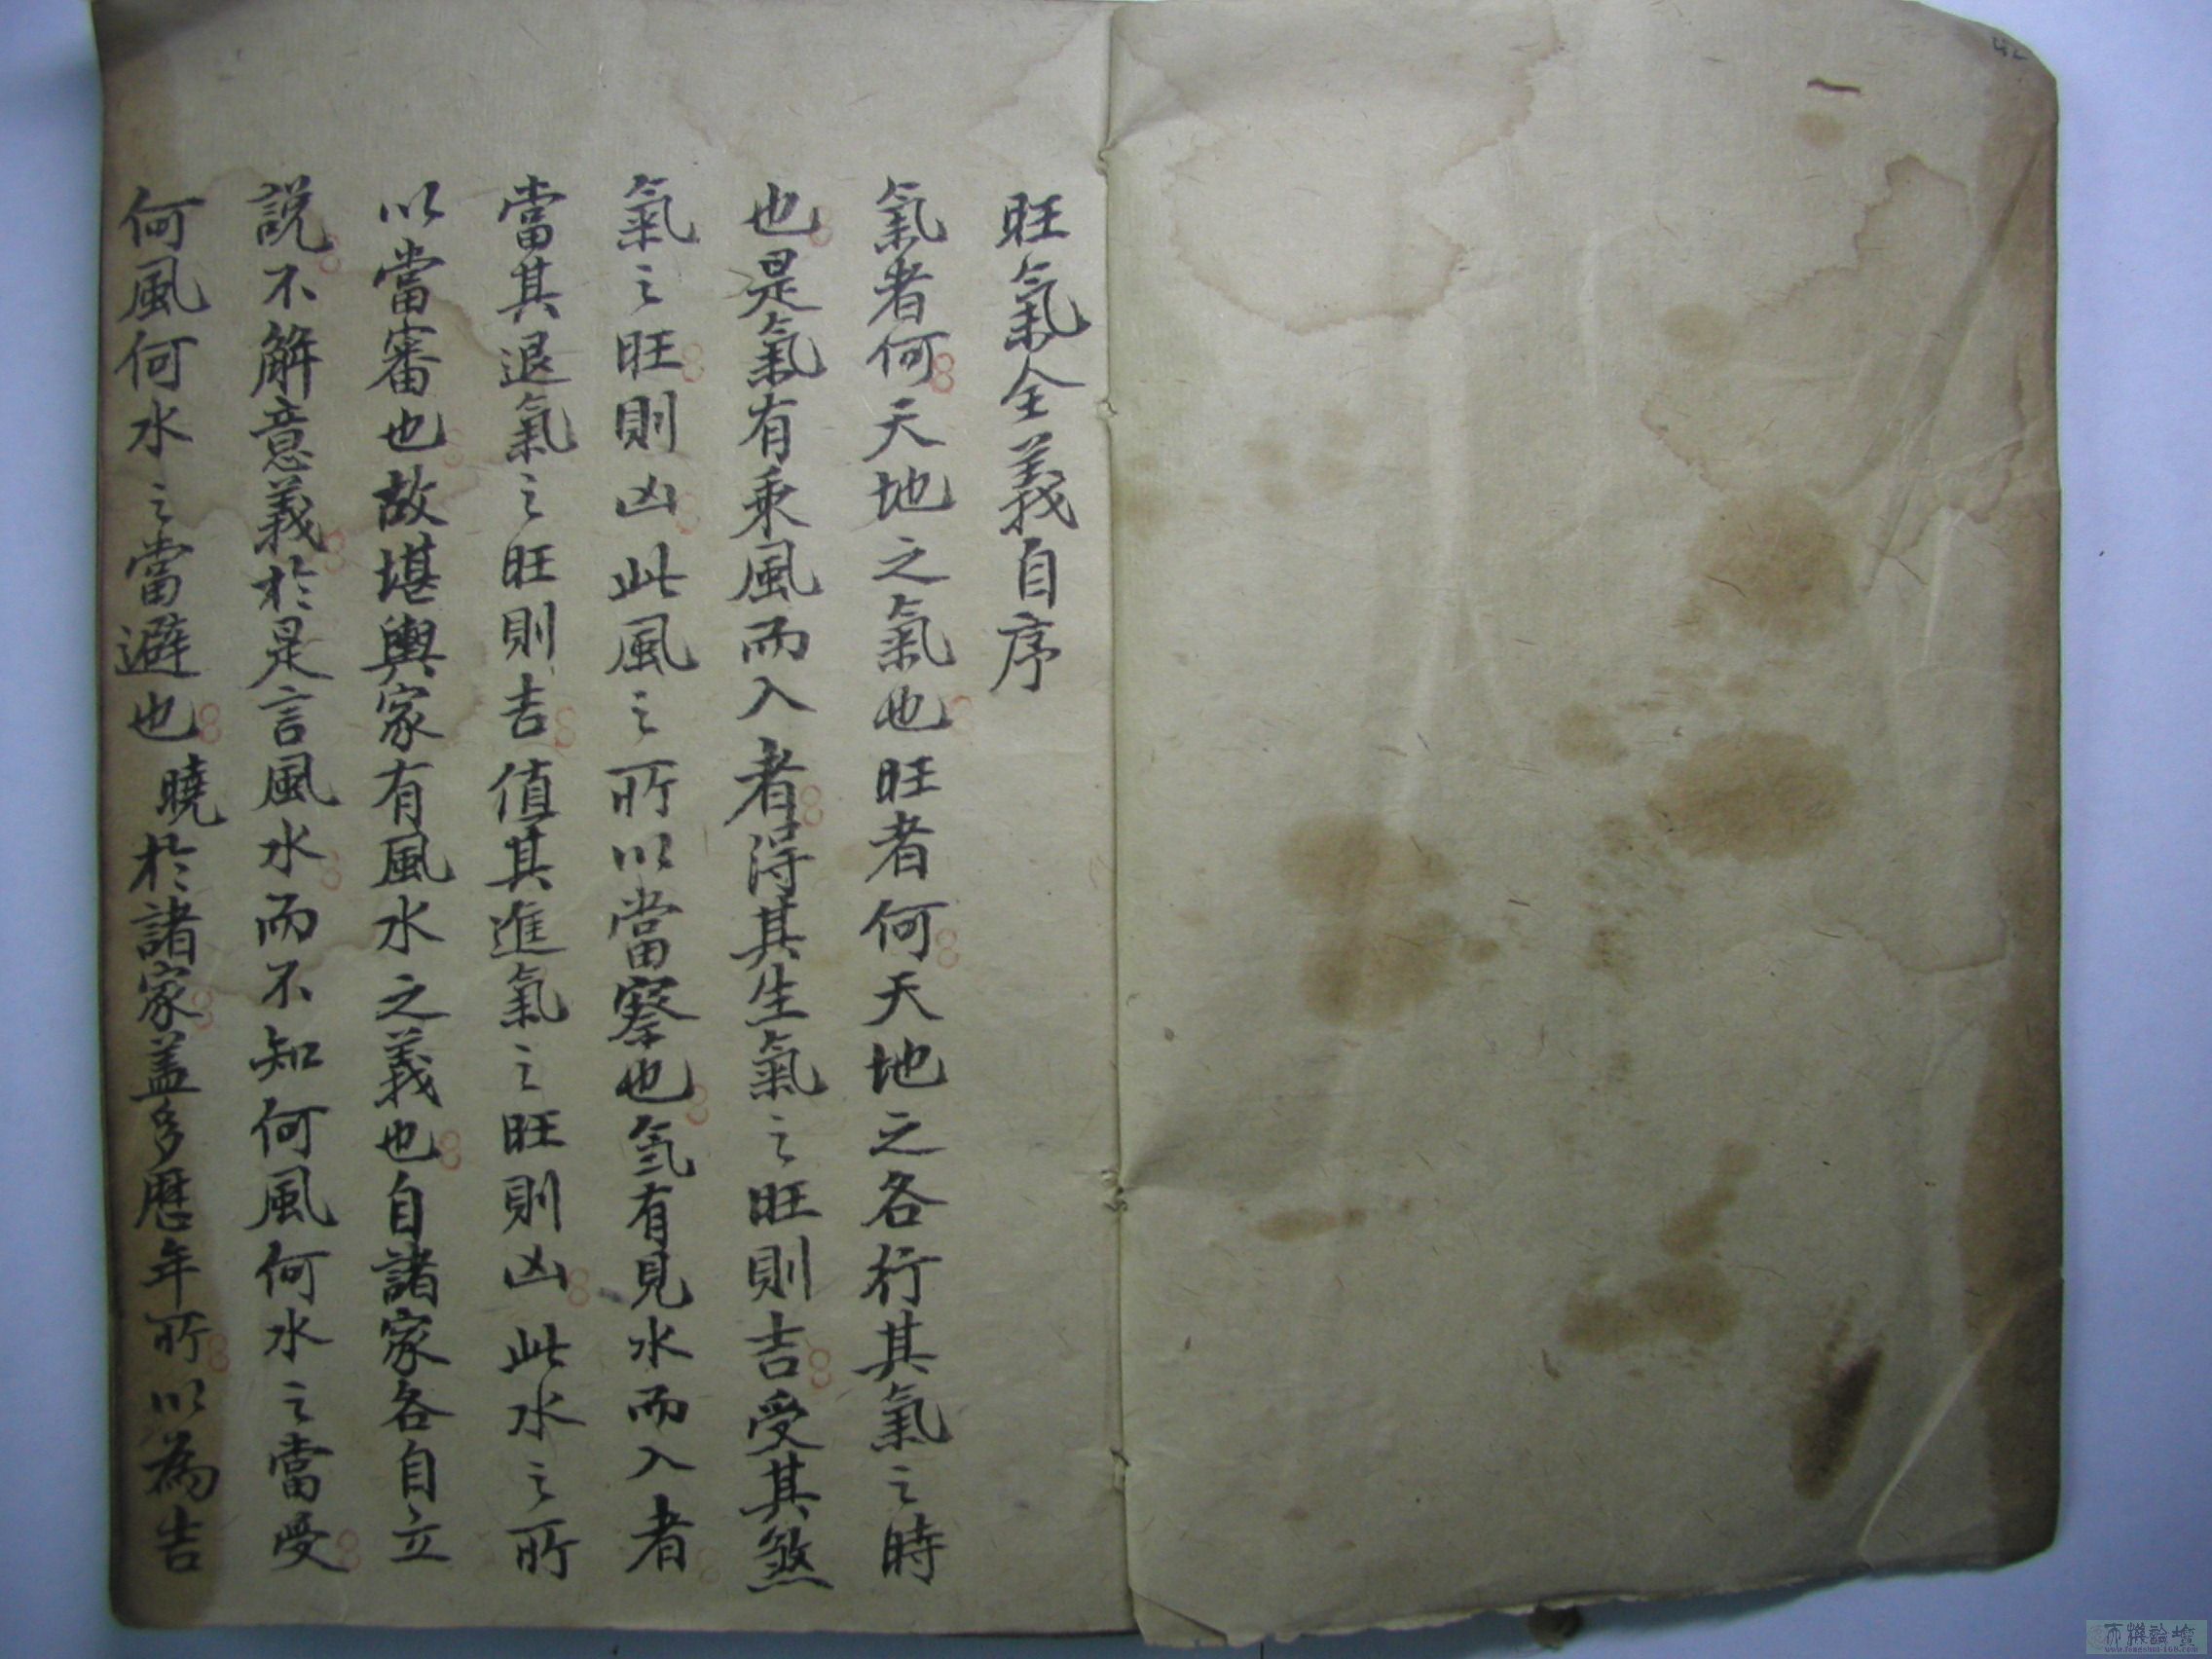 旺氣全義自序
氣者何天地之氣也旺者何天地之各行其氣之時
也是氣有乘風而入者得其生氣之旺則吉受其煞
氣之旺則凶此風之所以當察也氣有見水而入者
當其退氣之旺則吉值其進氣之旺則凶此水之所
以當審也故堪輿家有風水之義也自諸家各自立
説不解意義於是言風水而不知何風何水之當受
何風何水之當避也曉於諸家盖多歷年所以為吉